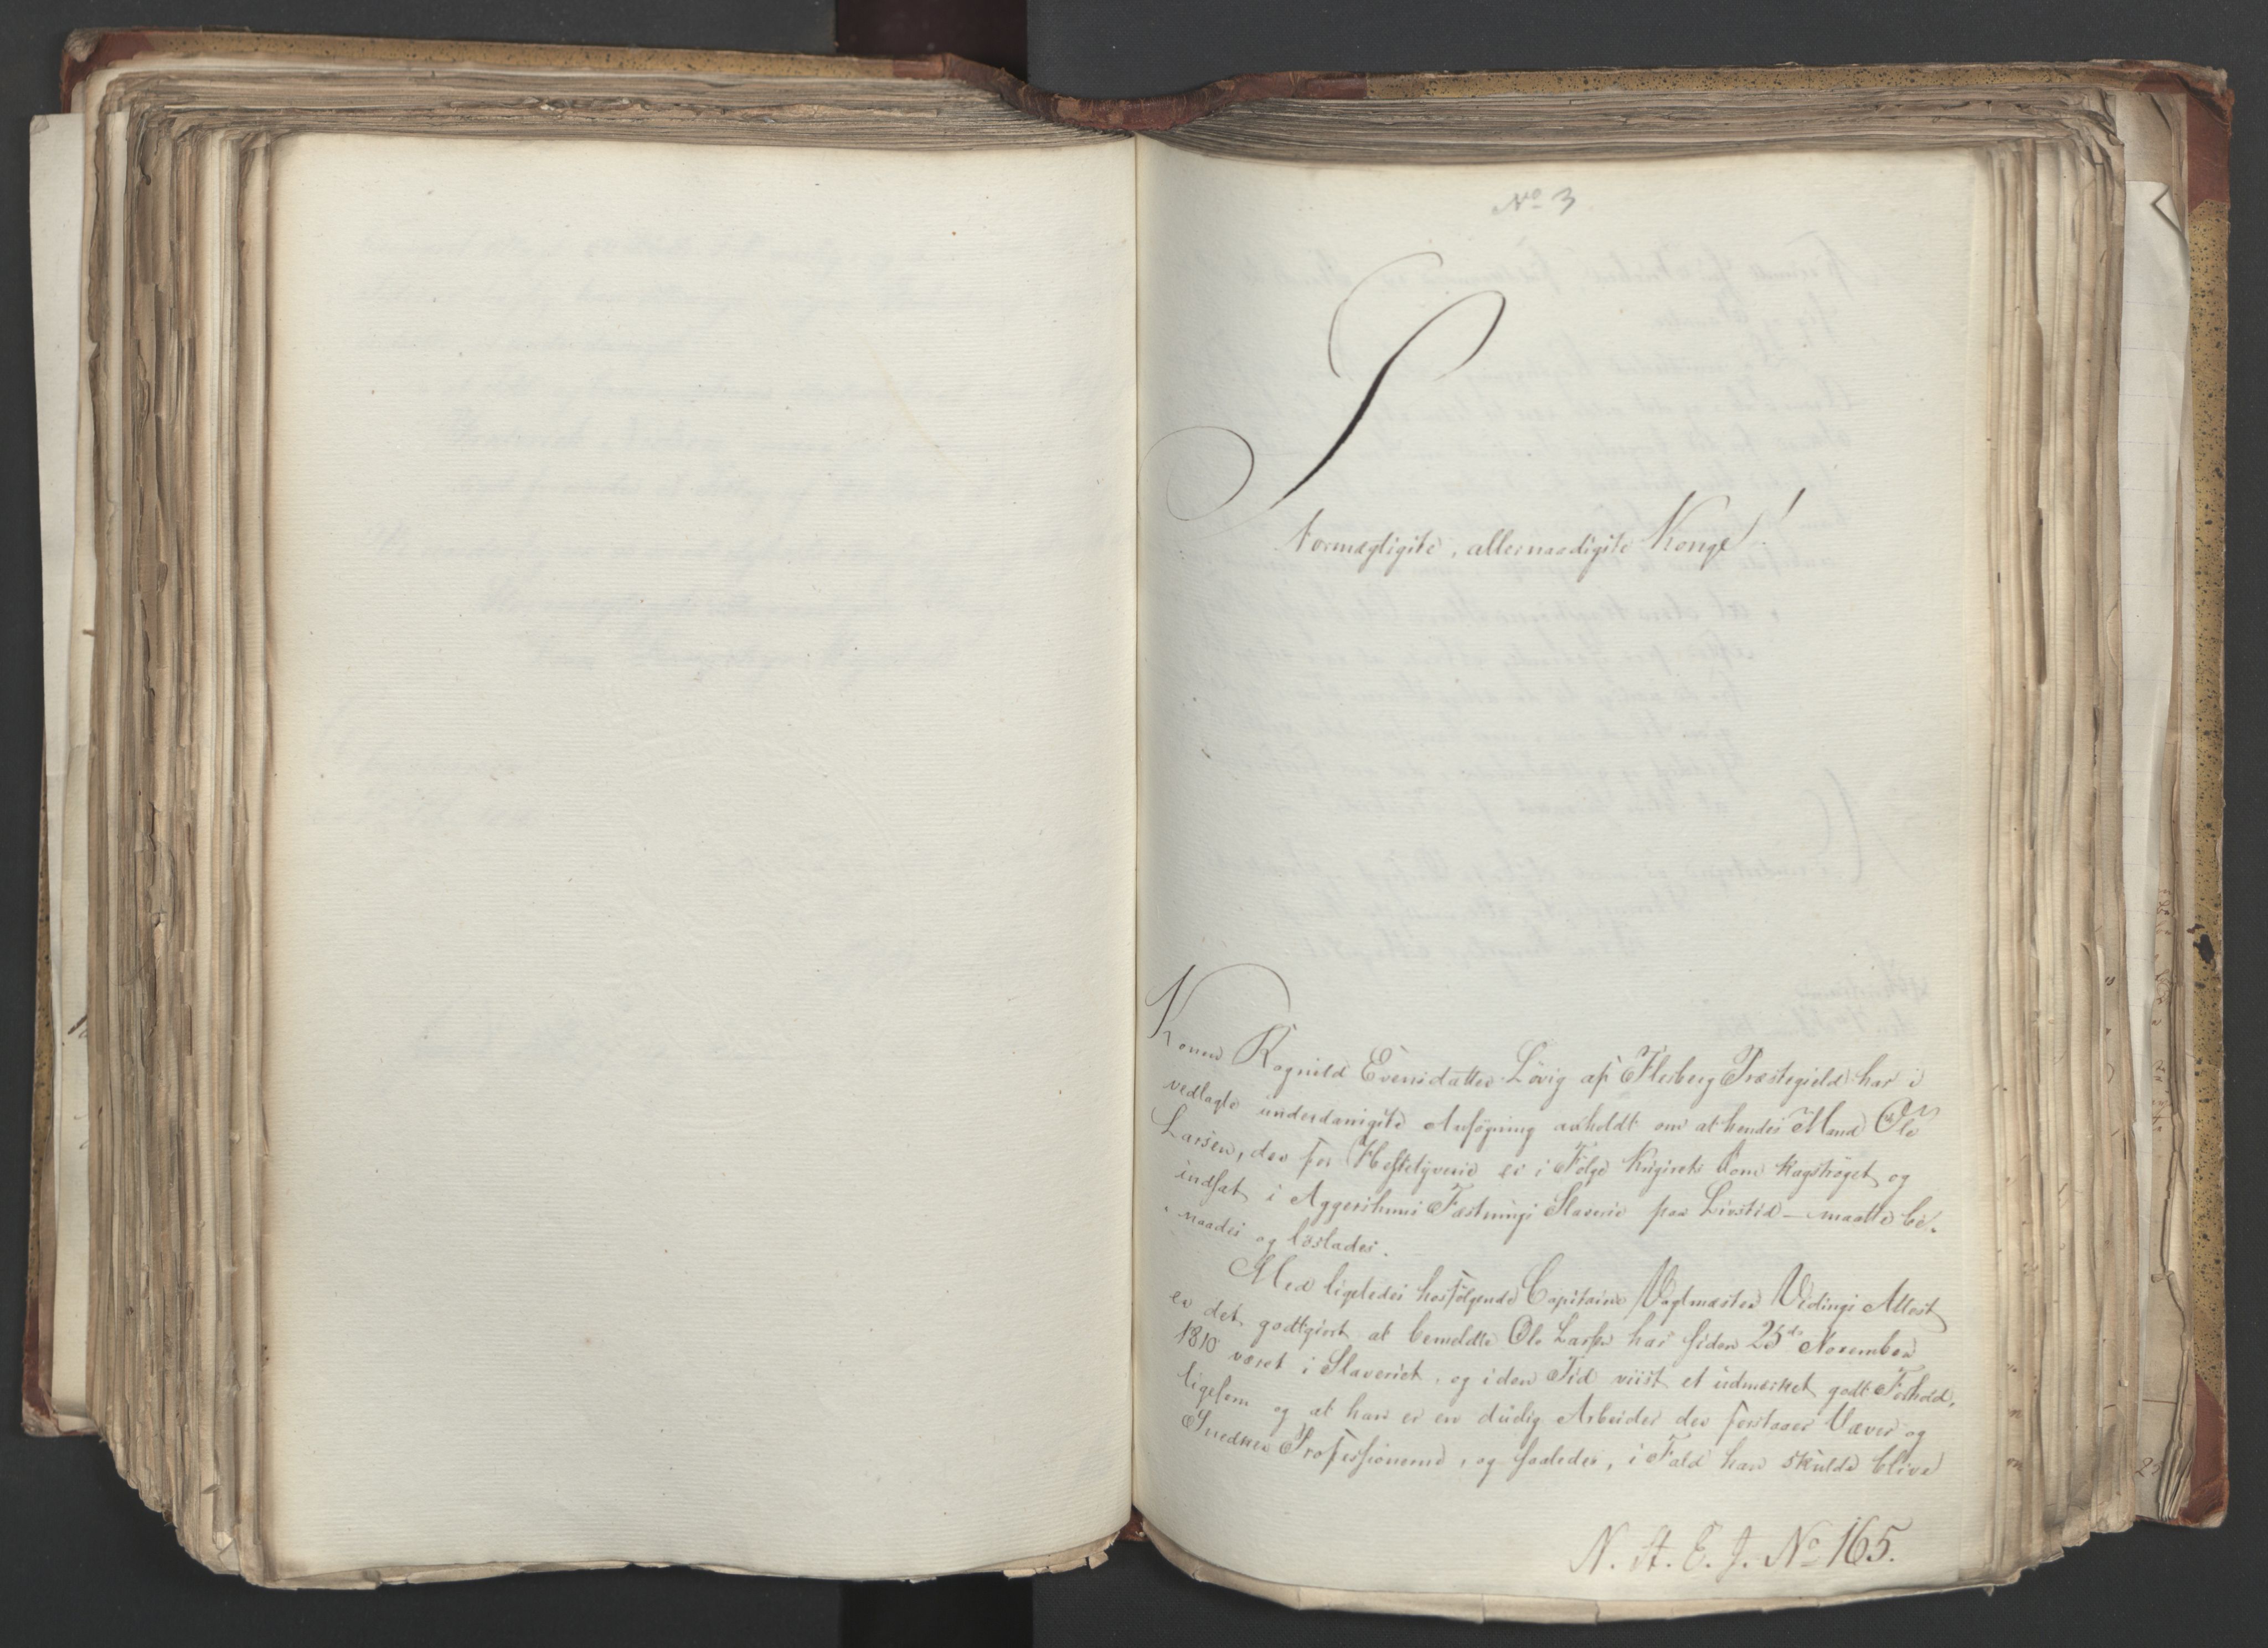 No 3
Stormægtigste, allernaadigste Konge!
Konen Ragnild Evensdatter Lövig af Flesberg Præstegield har i
vedlagte underdanigste Ansögning anholdt om at hendes Mand Ole
Larsen, der for Hestetyverie er i Fölge Krigsrets Dom kagströget og
indsat i Aggershuus Fæstnings Slaverie paa Livstid – maatte be-
naades og löslades.
Med ligeledes hosfölgende Capitaine Vagtmester Vedings Attest
er det godtgiort at bemeldte Ole Larsen har siden 25de November
1810 været i Slaveriet, og i den Tid viist et udmærket godt Forhold,
ligesom og at han er en duelig Arbeider der forstaaer Væver og
Snedker Professionerne, og saaledes, i Fald han skulde blive
N. A. E. J. No 165.